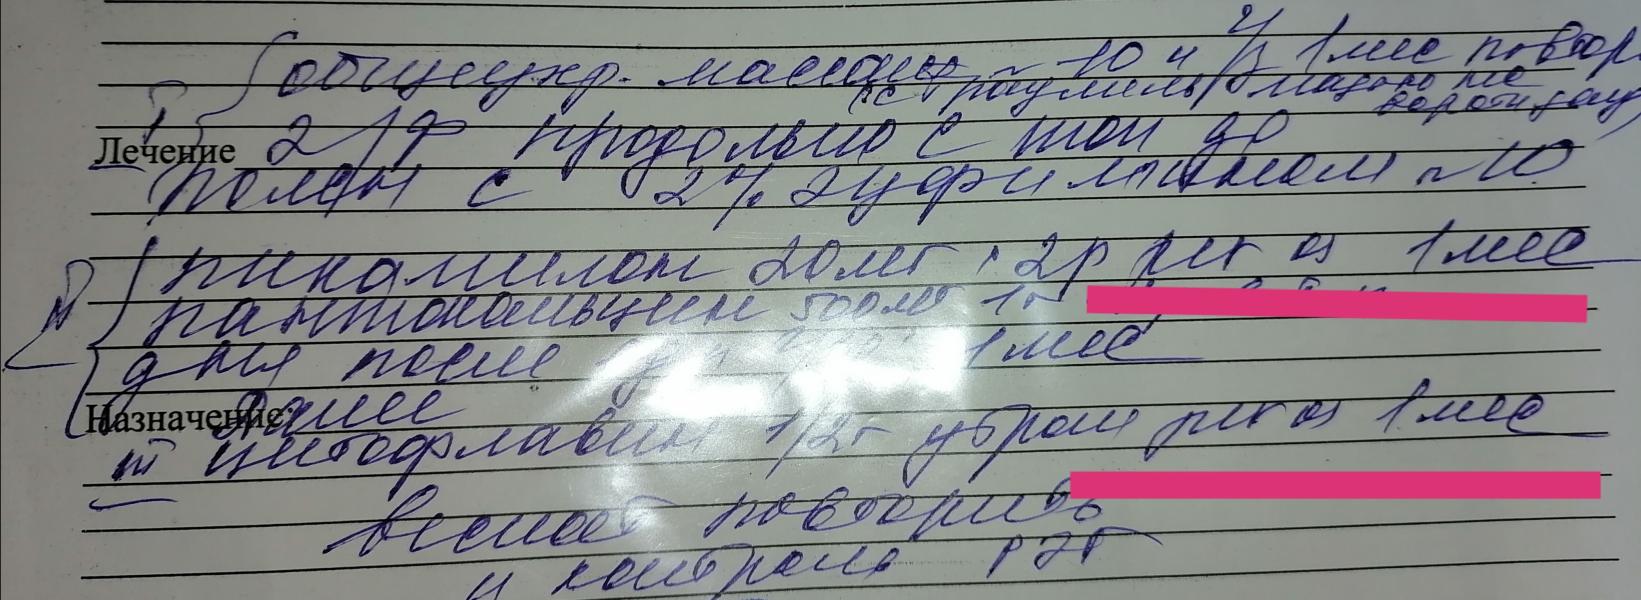 I общеукр. массаж n 10 и ч/з 1 мес повтор
(с траумель мазью на воротн зону)
Лечение 2) эф продольно с шоп до
поясн с 2% эуфиллином n 10
II пикамилон 20 мг 2р per os 1 мес
пантокальцин 500 мг 1т
дня после 1 мес
Назначение: далее
III цитофлавин 1/2т утром per os 1 мес
весной повторить
и контроль РЭГ